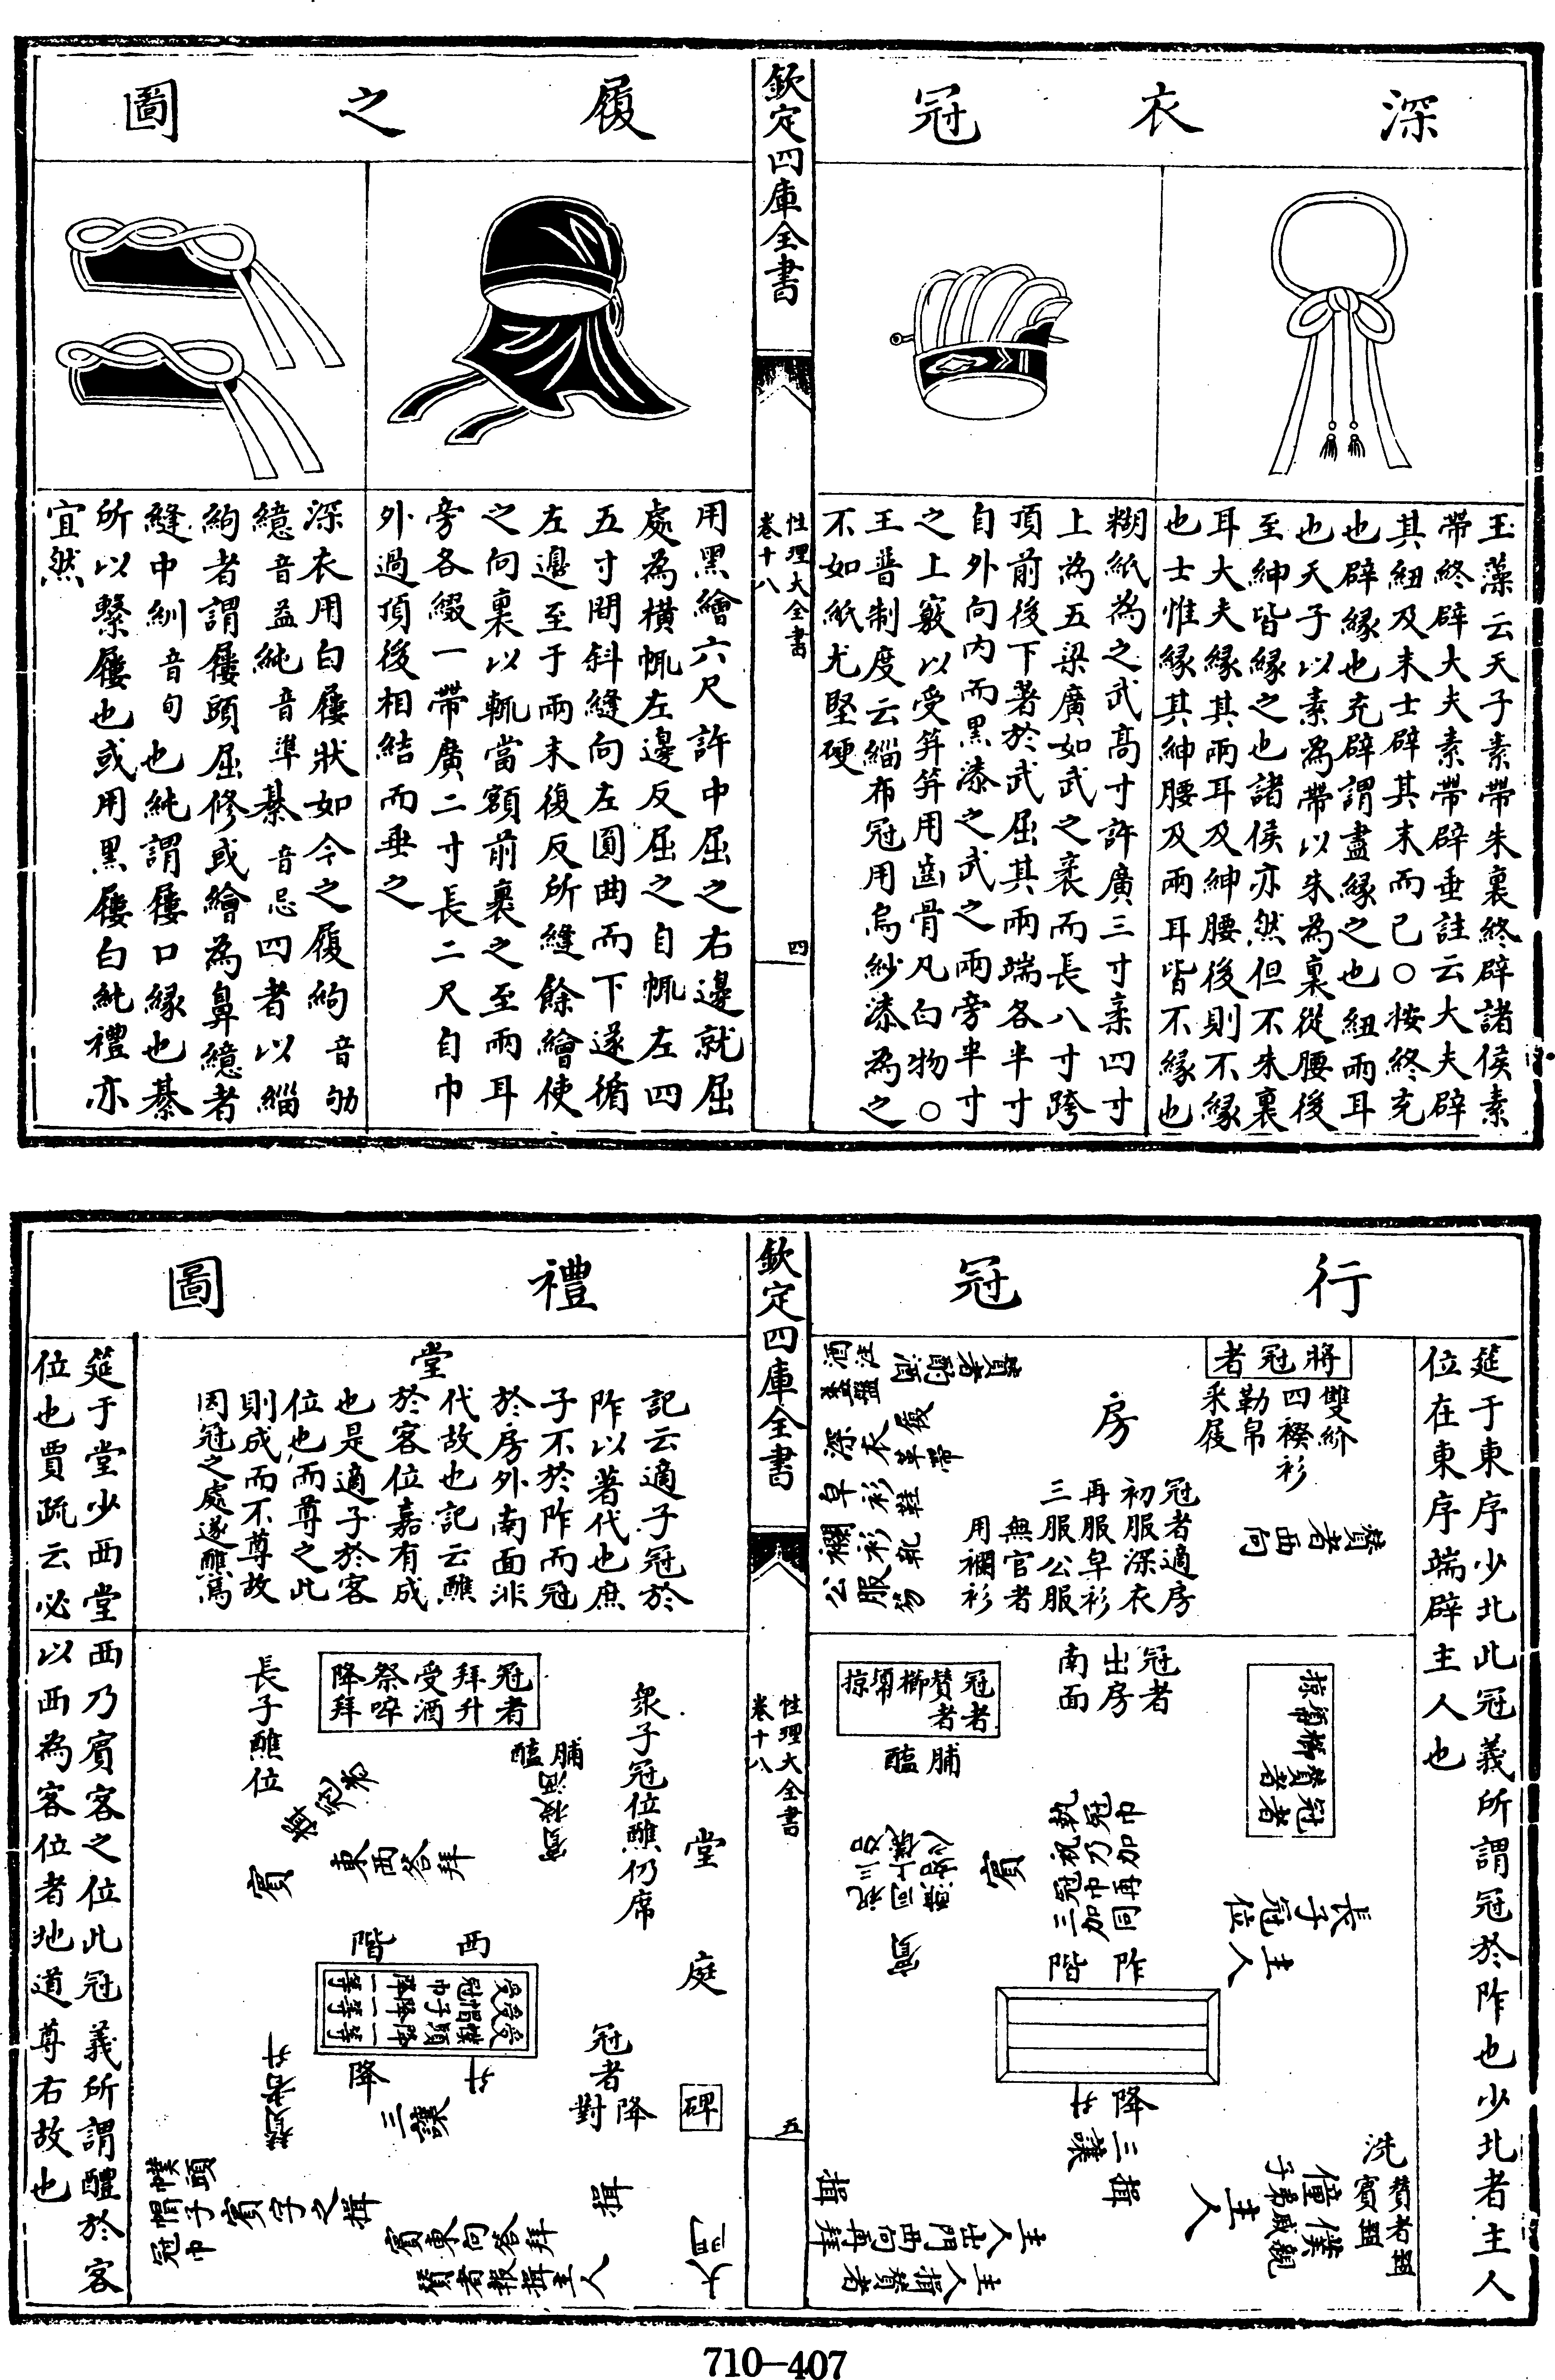 深衣冠
玉藻云天子素帶朱裏終辟諸侯素
帶終辟大夫素帶辟垂註云大夫辟
其紐及末士辟其末而已○按終充
也辟緣也充辟謂盡緣之也紐兩耳
也天子以素為帶以朱為裏從腰後
至紳皆緣之也諸侯亦然但不朱裏
耳大夫緣其兩耳及紳腰後則不緣
也士惟緣其紳腰及兩耳皆不緣也
糊紙為之武高寸許廣三寸袤四寸
上為五梁廣如武之袤而長八寸跨
頂前後下著於武屈其兩端各半寸
自外向内而黑漆之武之兩旁半寸
之上竅以受笄笄用齒骨凡白物○
王普制度云緇布冠用烏紗漆為之
不如紙尤堅硬
欽定四庫全書
性理大全書
卷十八
四
履之圖
用黑繒六尺許中屈之右邊就屈
處為橫㡇左邊反屈之自㡇左四
五寸間斜縫向左圓曲而下遂循
左邊至于兩末復反所縫餘繒使
之向裏以㡇當額前裹之至兩耳
旁各綴一帶廣二寸長二尺自巾
外過頂後相結而垂之
深衣用白屨狀如今之履絇音劬
繶音益純音準綦音忌四者以緇
絇者謂屨頭屈修或繒為鼻繶者
縫中紃音旬也純謂屨口緣也綦
所以繫屨也或用黑屨白純禮亦
宜然
行冠
筵于東序少北此冠義所謂冠於阼也少北者主人
位在東序端辟主人也
將冠者
雙紒
四䙆衫
勒帛
采屐
贊者西向
房
冠者適房
初服深衣
再服皁衫
三服公服
無官者
用襴衫
贊者酌酒
酒注
盞盤
深衣履
大帶
皁衫鞋
襴衫靴
公服笏
冠者
贊者
櫛
掠
冠者
出房
南面
冠者
贊者
櫛
掠
脯醢
長子冠位
主人
冠巾
執冠祝乃加巾
三加冠同再
賓
阼階
降升
三讓
揖
揖
主人
洗
賓盥
贊者盥
僮僕
子弟戚親
主人出門西向再拜
主人揖贊者
欽定四庫全書
性理大全書
卷十八
五
禮圖
堂
記云適子冠於
阼以著代也庶
子不於阼而冠
於房外南面非
代故也記云醮
於客位嘉有成
也是適子於客
位也而尊之此
則成而不尊故
因冠之處遂醮焉
眾子冠位醮仍席
冠者
拜升
受酒
祭啐
降拜
脯醢
長子醮位
東西答拜
賓
堂
西階
庭
冠者
降對
碑
升
降
三讓
贊者升
揖
大門
賓字之揖
幞頭
帽子
冠巾
賓東向答拜
贊者報揖主人
筵于堂少西堂西乃賓客之位此冠義所謂醮於客
位也賈疏云必以西為客位者地道尊右故也
710—407